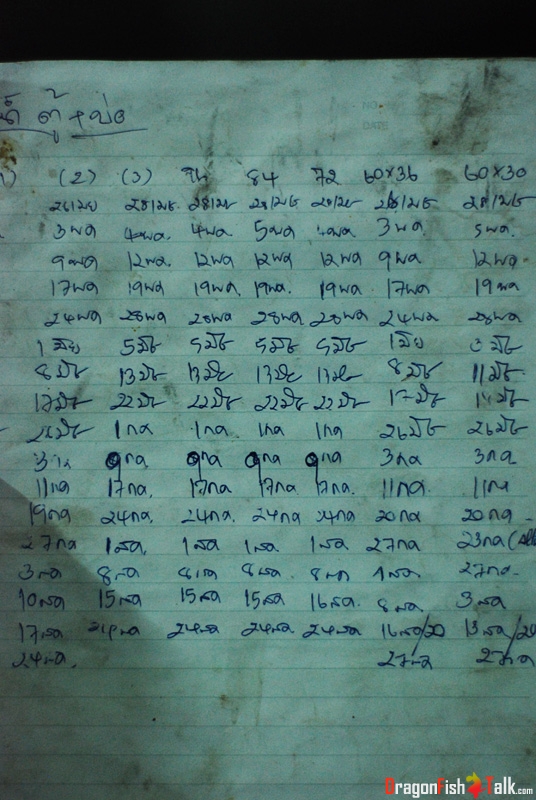 ตู้
(2) (3) 84 72 60x36 60x30
3พค 4พค. 4พค. 5พค 4พค 3พค 5พค.
9พค 12พค. 12พค 12พค 12พค 9พค 12พค
17พค 19พค 19พค. 19พค. 19พค 17พค 19พค
24พค 28พค 28พค 28พค 28พค 24พค 28พค
1มิย 5มิย 5มิย 5มิย 5มิย 1มิย 3มิย
8มิย 13มิย 13มิย 13มิย 13มิย 8มิย 11มิย
17มิย 22มิย 22มิย 22มิย 22มิย 17มิย
1กค 1กค. 1กค 1กค 26มิย 26มิย
9กค 9กค 9กค 9กค 3กค 3กค.
11กค 17กค. 17กค. 17กค 17กค. 11กค. 11กค
19กค 24กค. 24กค. 24กค 24กค 20กค 20กค
27กค 1สค. 1สค 1สค. 1สค 27กค 23กค
3สค 8สค 8สค 8สค. 8สค 1สค 27กค
10สค 15สค 15สค 15สค 16สค. 8สค 3สค
17สค 24สค 24สค. 24สค. 24สค 16สค/20 13สค/20
24สค. 27สค 27สค
DragonFishTalk.com